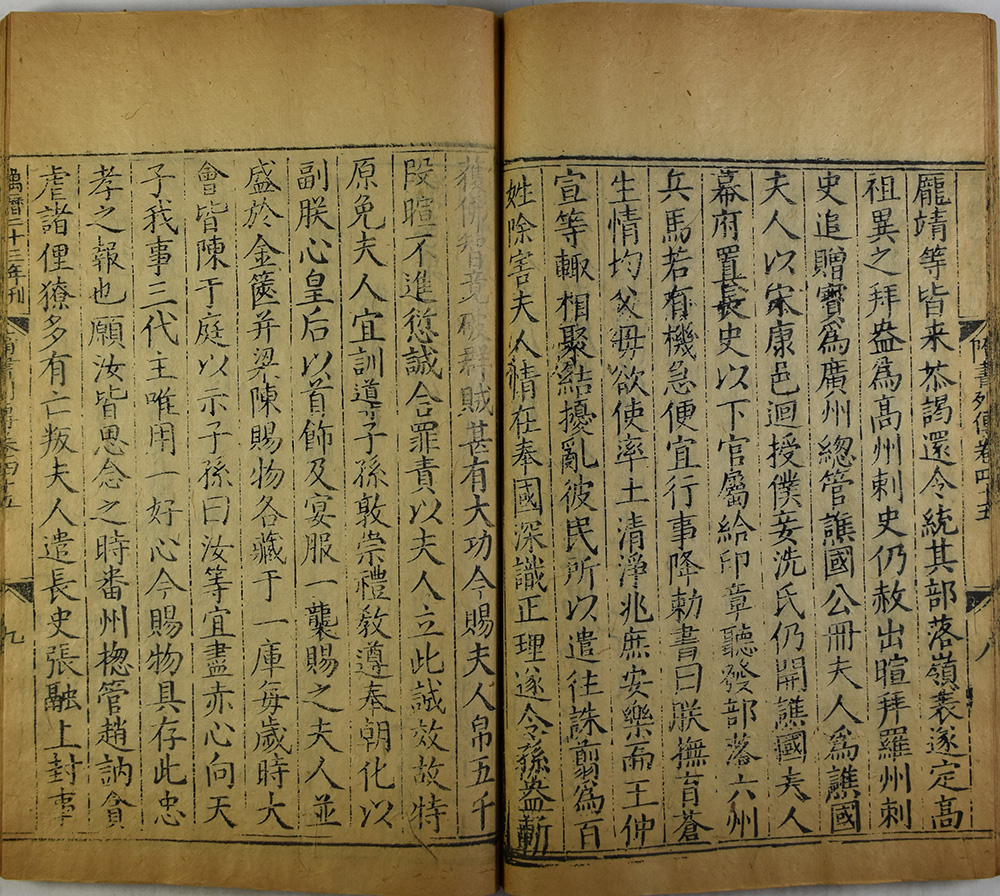 隋書列傳卷四十五
八
龐靖等皆来𠫤謁還令統其部落嶺表遂定高
祖異之拜盎爲高州刺史仍赦出暄拜羅州刺
史追贈寳爲廣州總管譙國公冊夫人爲譙國
夫人以宋康邑迴授僕妾洗氏仍開譙國夫人
幕府置長史以下官屬給印章聽發部落六州
兵馬若有機急便宜行事降勅書曰朕撫育蒼
生情均父母欲使率土清淨兆庶安樂而王仲
宣等輙相聚結擾亂彼民所以遣往誅翦爲百
姓除害夫人情在奉國深識正理遂令孫盎斬
獲佛智竟破群賊甚有大功今賜夫人帛五千
段暄不進愆誠合罪責以夫人立此誠效故特
原免夫人宜訓導子孫敦崇禮敎遵奉朝化以
副朕心皇后以首飾及宴服一襲賜之夫人並
盛於金篋并梁陳賜物各藏于一庫每歲時大
會皆陳于庭以示子孫曰汝等宜盡赤心向天
子我事三代主唯用一好心今賜物具存此忠
孝之報也願汝皆思念之時番州楤管趙訥貪
虐諸俚獠多有亡叛夫人遣長史張融上封事
萬曆二十三年刊
隋書列傳卷四十五
九